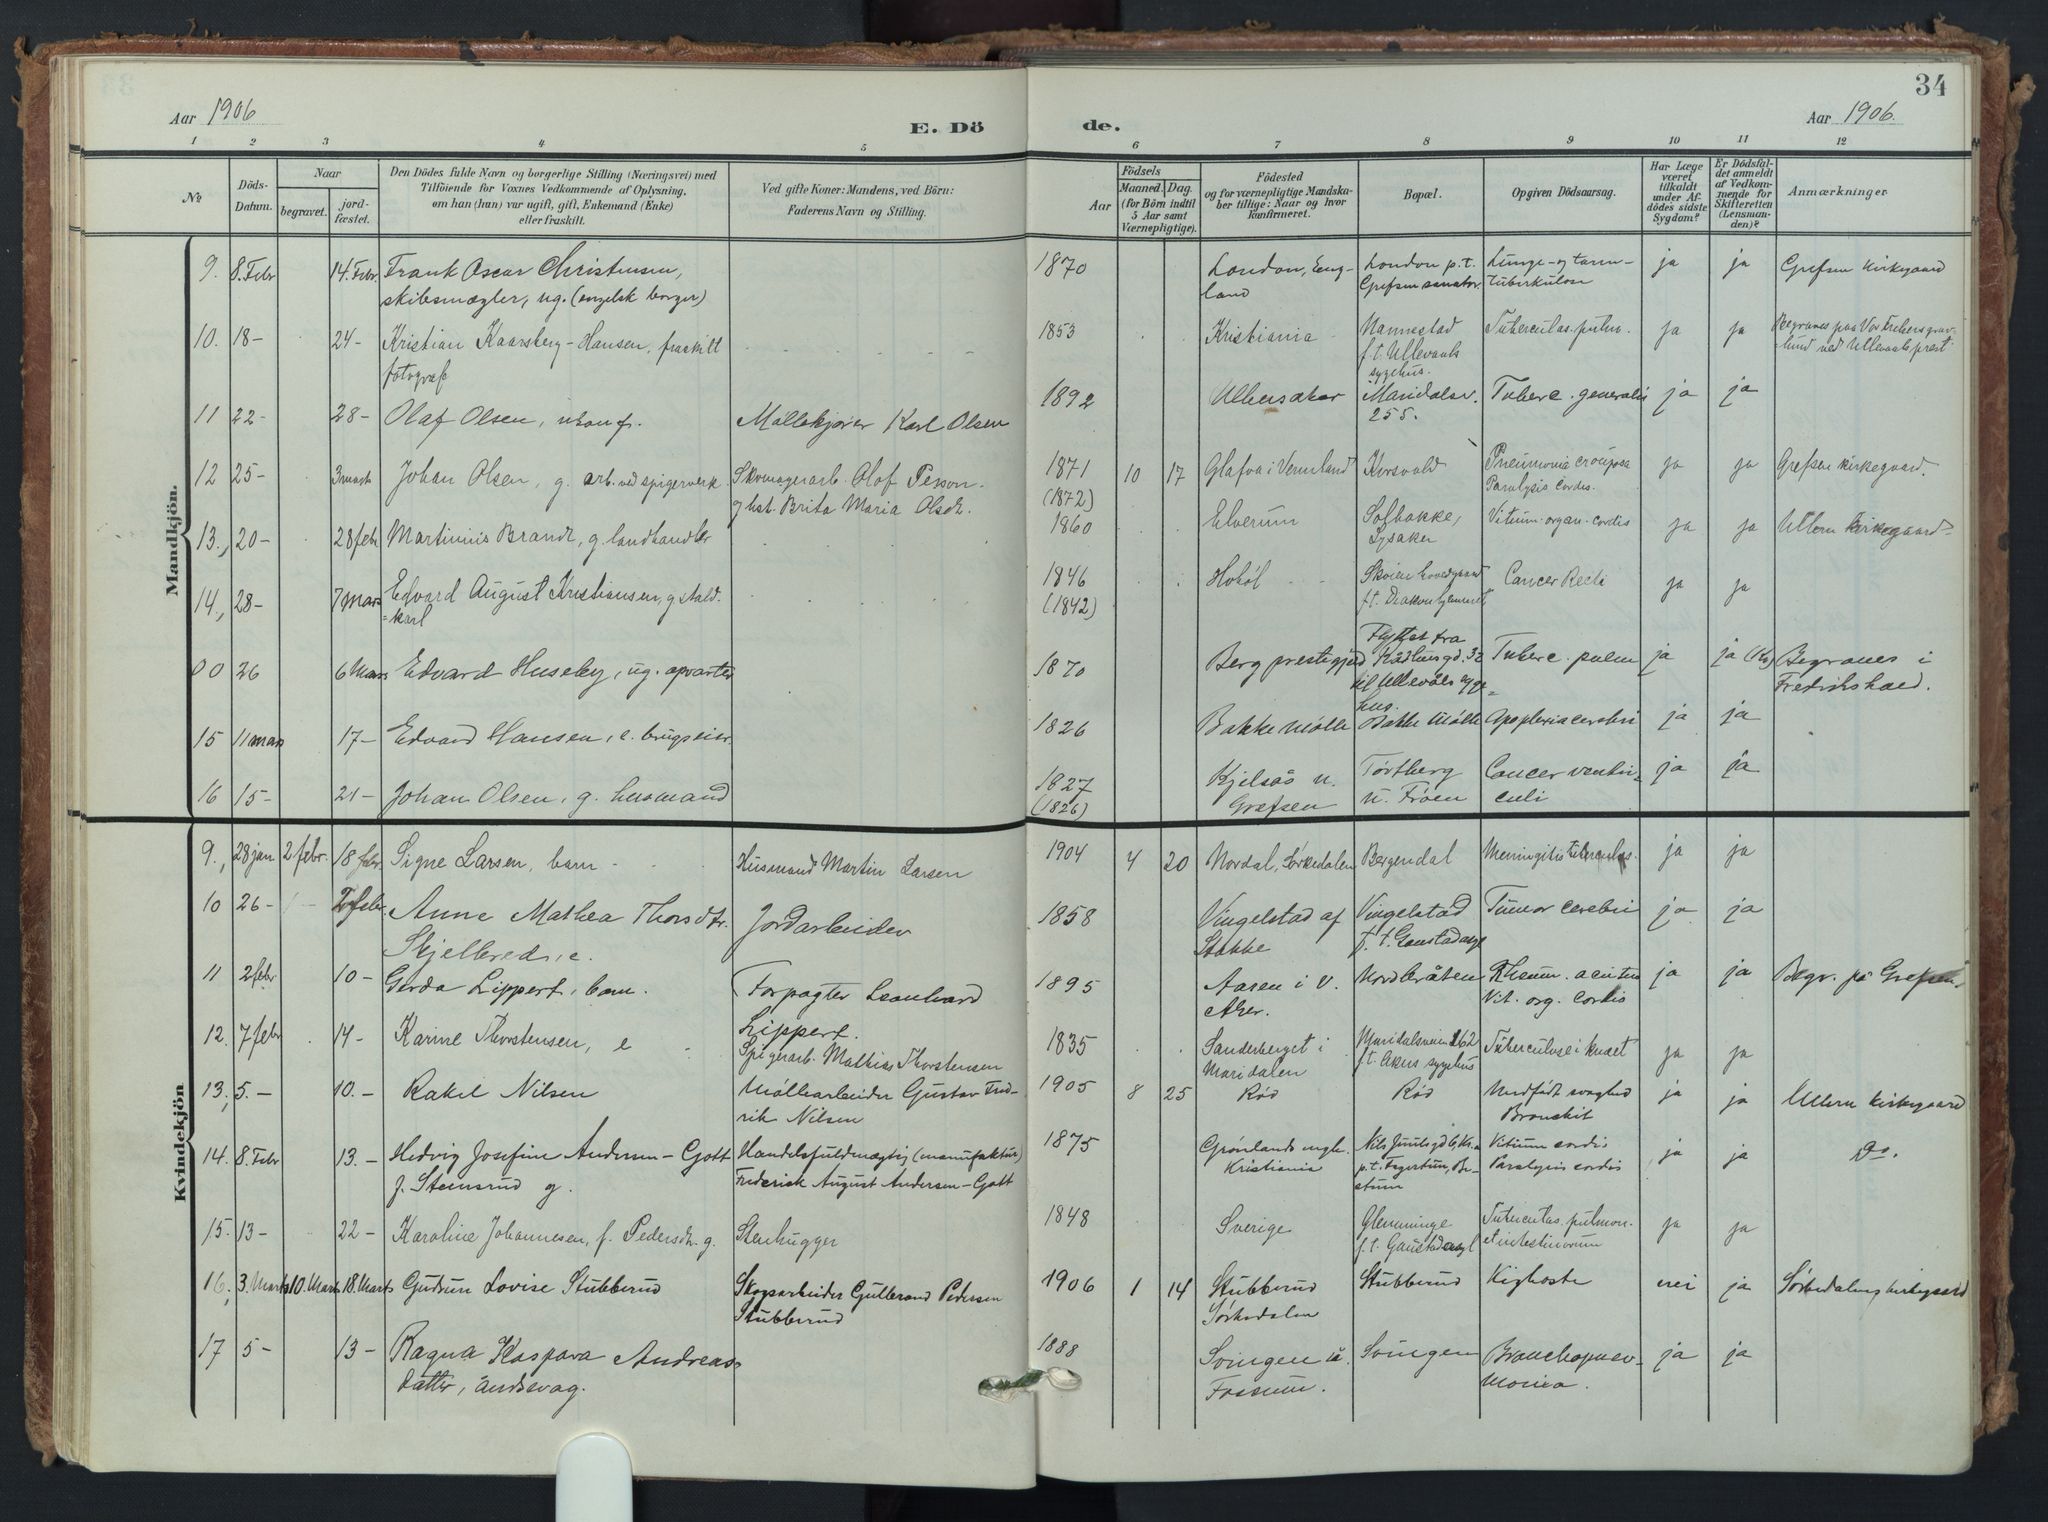 34
Aar 1906
E. Dö
de.
Aar 1906.
1 2 3 4 5 6 7 8 9 10 11 12
№
Döds-Datum.
Naar
begravet.
jord-fæstet.
Den Dödes fulde Navn og borgerlige Stilling (Næringsvei) med
Tilföiende for Voxnes Vedkommende af Oplysning,
om han (hun) var ugift, gift, Enkemand (Enke)
eller fraskilt.
Ved gifte Koner: Mandens, ved Börn:
Faderens Navn og Stilling.
Födsels
Aar
Maaned. Dag.
(for Börn indtil
5 Aar samt
Værnepligtige).
Födested
og for værnepligtige Mandska-
ber tillige: Naar og hvor
konfirmeret.
Bopæl.
Opgiven Dödsaarsag.
Har Læge
været
tilkaldt
under Af-
dödes sidste
Sygdom?
Er Dödsfal-
det anmeldt
af Vedkom-
mende for
Skifteretten
(Lensman-
den)?
Anmærkninger
Mandkjön.
9. 8. Febr 14. Febr. Frank Oscar Christensen, 1870 London, Eng- London p.t. Lunge- og tarm- ja ja Grefsen Kirkegaard
skibsmægler, ug. (engelsk borger) land Grefsen sanator. tuberkulose
10. 18- 24- Kristian Kaarsberg-Hansen, fraskilt 1853 Kristiania Mannestad Tuberculos. pulm. ja ja Begraves paa Vor Frelsers grav-
fotograf f.t. Ullevaals lund ved Ullevaals prest
sygehus.
11 22- 28- Olaf Olsen, ukonf. Möllekjører Karl Olsen 1892 Ullensaker Maridalsv. Tuberc. generalis ja ja
255.
12 25- 3 mars Johan Olsen, g. arb. ved spigerverk Skomagerarb. Olof Person 1871 10 17 Glafva i Vermland Korsvold Pneumonia crouposa ja ja Grefsen kirkegaard.
og hst. Brita Maria Olsdt. (1872) Paralysis cordis.
13., 20- 28 febr Martinius Brandt, g. landhandler 1860 Elverum Solbakke, Vitium organ. cordis ja ja Ullern Kirkegaard
Lysaker
14., 28- 7 mars Edvard August Kristiansen, g. stald- 1846 Hobøl Skøien hovedgaard Cancer Recti ja ja
karl (1842) f.t. Diakonhjemmet
00 26 6 Mars Edvard Huseby, ug. opvarter 1870 Berg prestegjeld Flyttet fra Tuberc. pulm ja ja Begraves i
Rådhusgd. 32 Fredrikshald.
til Ullevåls syge-
hus.
15 11 mars 17- Edvard Hansen, e. brugseier. 1826 Bakke Mølle Bakke Mølle Apoplexia cerebri ja ja
16 15- 21- Johan Olsen, g. husmand 1827 Kjelsås u. Tørtberg Cancer ventri- ja ja
(1826) Grefsen u. Frøen culi
Kvindekjön
9., 28 jan. 2 febr. 18 febr. Signe Larsen, barn Husmand Martin Larsen 1904 4 20 Nordal, Sørkedalen Bergendal Meningitis tuberculos. ja ja
10 26- febr. Anne Mathea Thorsdtr. Jordarbeider 1858 Vingelstad af Vingelstad Tumor cerebri ja ja
Skjelbred, e. Stokke f.t. Gaustad asyl
11 2 febr 10- Gerda Lippert, barn. Forpagter Leonhard 1895 Aasen i V. Nordbråten Rheum. acutus ja ja Begr. på Grefsen
Lippert. Aker. Vit. org. cordis
12. 7 febr 14- Karine Thorstensen, e Spigerarb. Mathias Thorstensen 1835 Sanderberget i Maridalsveien 262 Tuberculose i knæet ja ja
Maridalen f.t. Akers sygehus
13, 5.- 10.- Rakel Nilsen Møllearbeider Gustav Fred- 1905 8 25 Rød Rød Medfødt svaghed ja ja Ullern kirkegaard
rik Nilsen Bronkit
14. 8. Febr 13.- Hedvig Josefine Andersen-Gott Handelsfuldmægtig (manufaktur) 1875 Grønlands mgh. Nils Juulsgd 6, Kr.a Vitium cordis ja ja Do.
f. Stensrud g. Frederik August Andersen-Gott Kristiania p.t. Fagertun, Be- Paralysis cordis
stum
15. 13- 22- Karoline Johannesen, f. Pedersdt. g. Stenhugger 1848 Sverige Glemminge Tuberculos. pulmon. ja ja
f.t. Gaustad asyl et intestinorum
16, 3. Marts 10. Marts 18. Marts Gudrun Lovise Stubberud Skogsarbeider Gulbrand Pedersen 1906 1 14 Stubberud Stubberud Kighoste nei ja Sørkedalens kirkegaard
Stubberud Sørkedalen
17 5- 13- Ragna Kaspara Andreas- 1888 Svingen u. Svingen Bronchopnev- ja ja
datter, åndssvag. Fossum. monia.